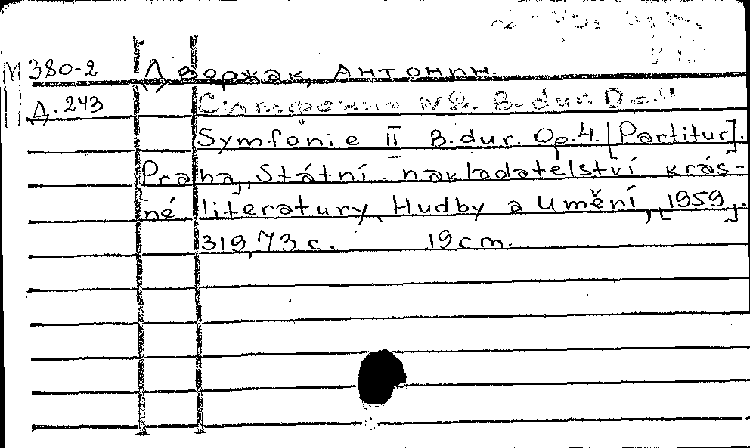 М 380-2 Дворжак, Антонин.
Д. 243
B. dur Op. 4
Symfonie II B. dur. Op. 4. [Partitur].
Praha, Státní nakladatelství krás-
né literatury, Hudby a Umění, [1959].
319,73 с. 19 cm.